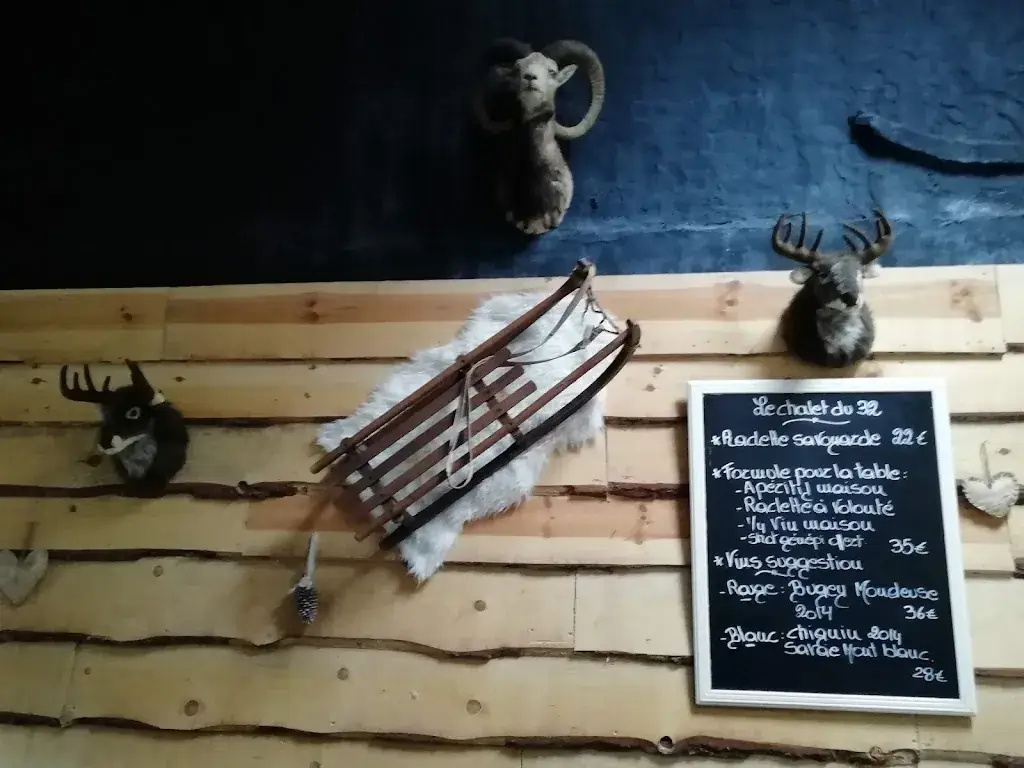 Le chalet du 32
*Raclette savoyarde 22€
*Formule pour la table:
- Apéritif maison
- Raclette à volonté
- 1/4 Vin maison
- Shot génépi offert 35€
*Vins suggestion
- Rouge: Bugey Mondeuse
2014 36€
- Blanc: Chignin 2014
Savoie Mont blanc.
28€